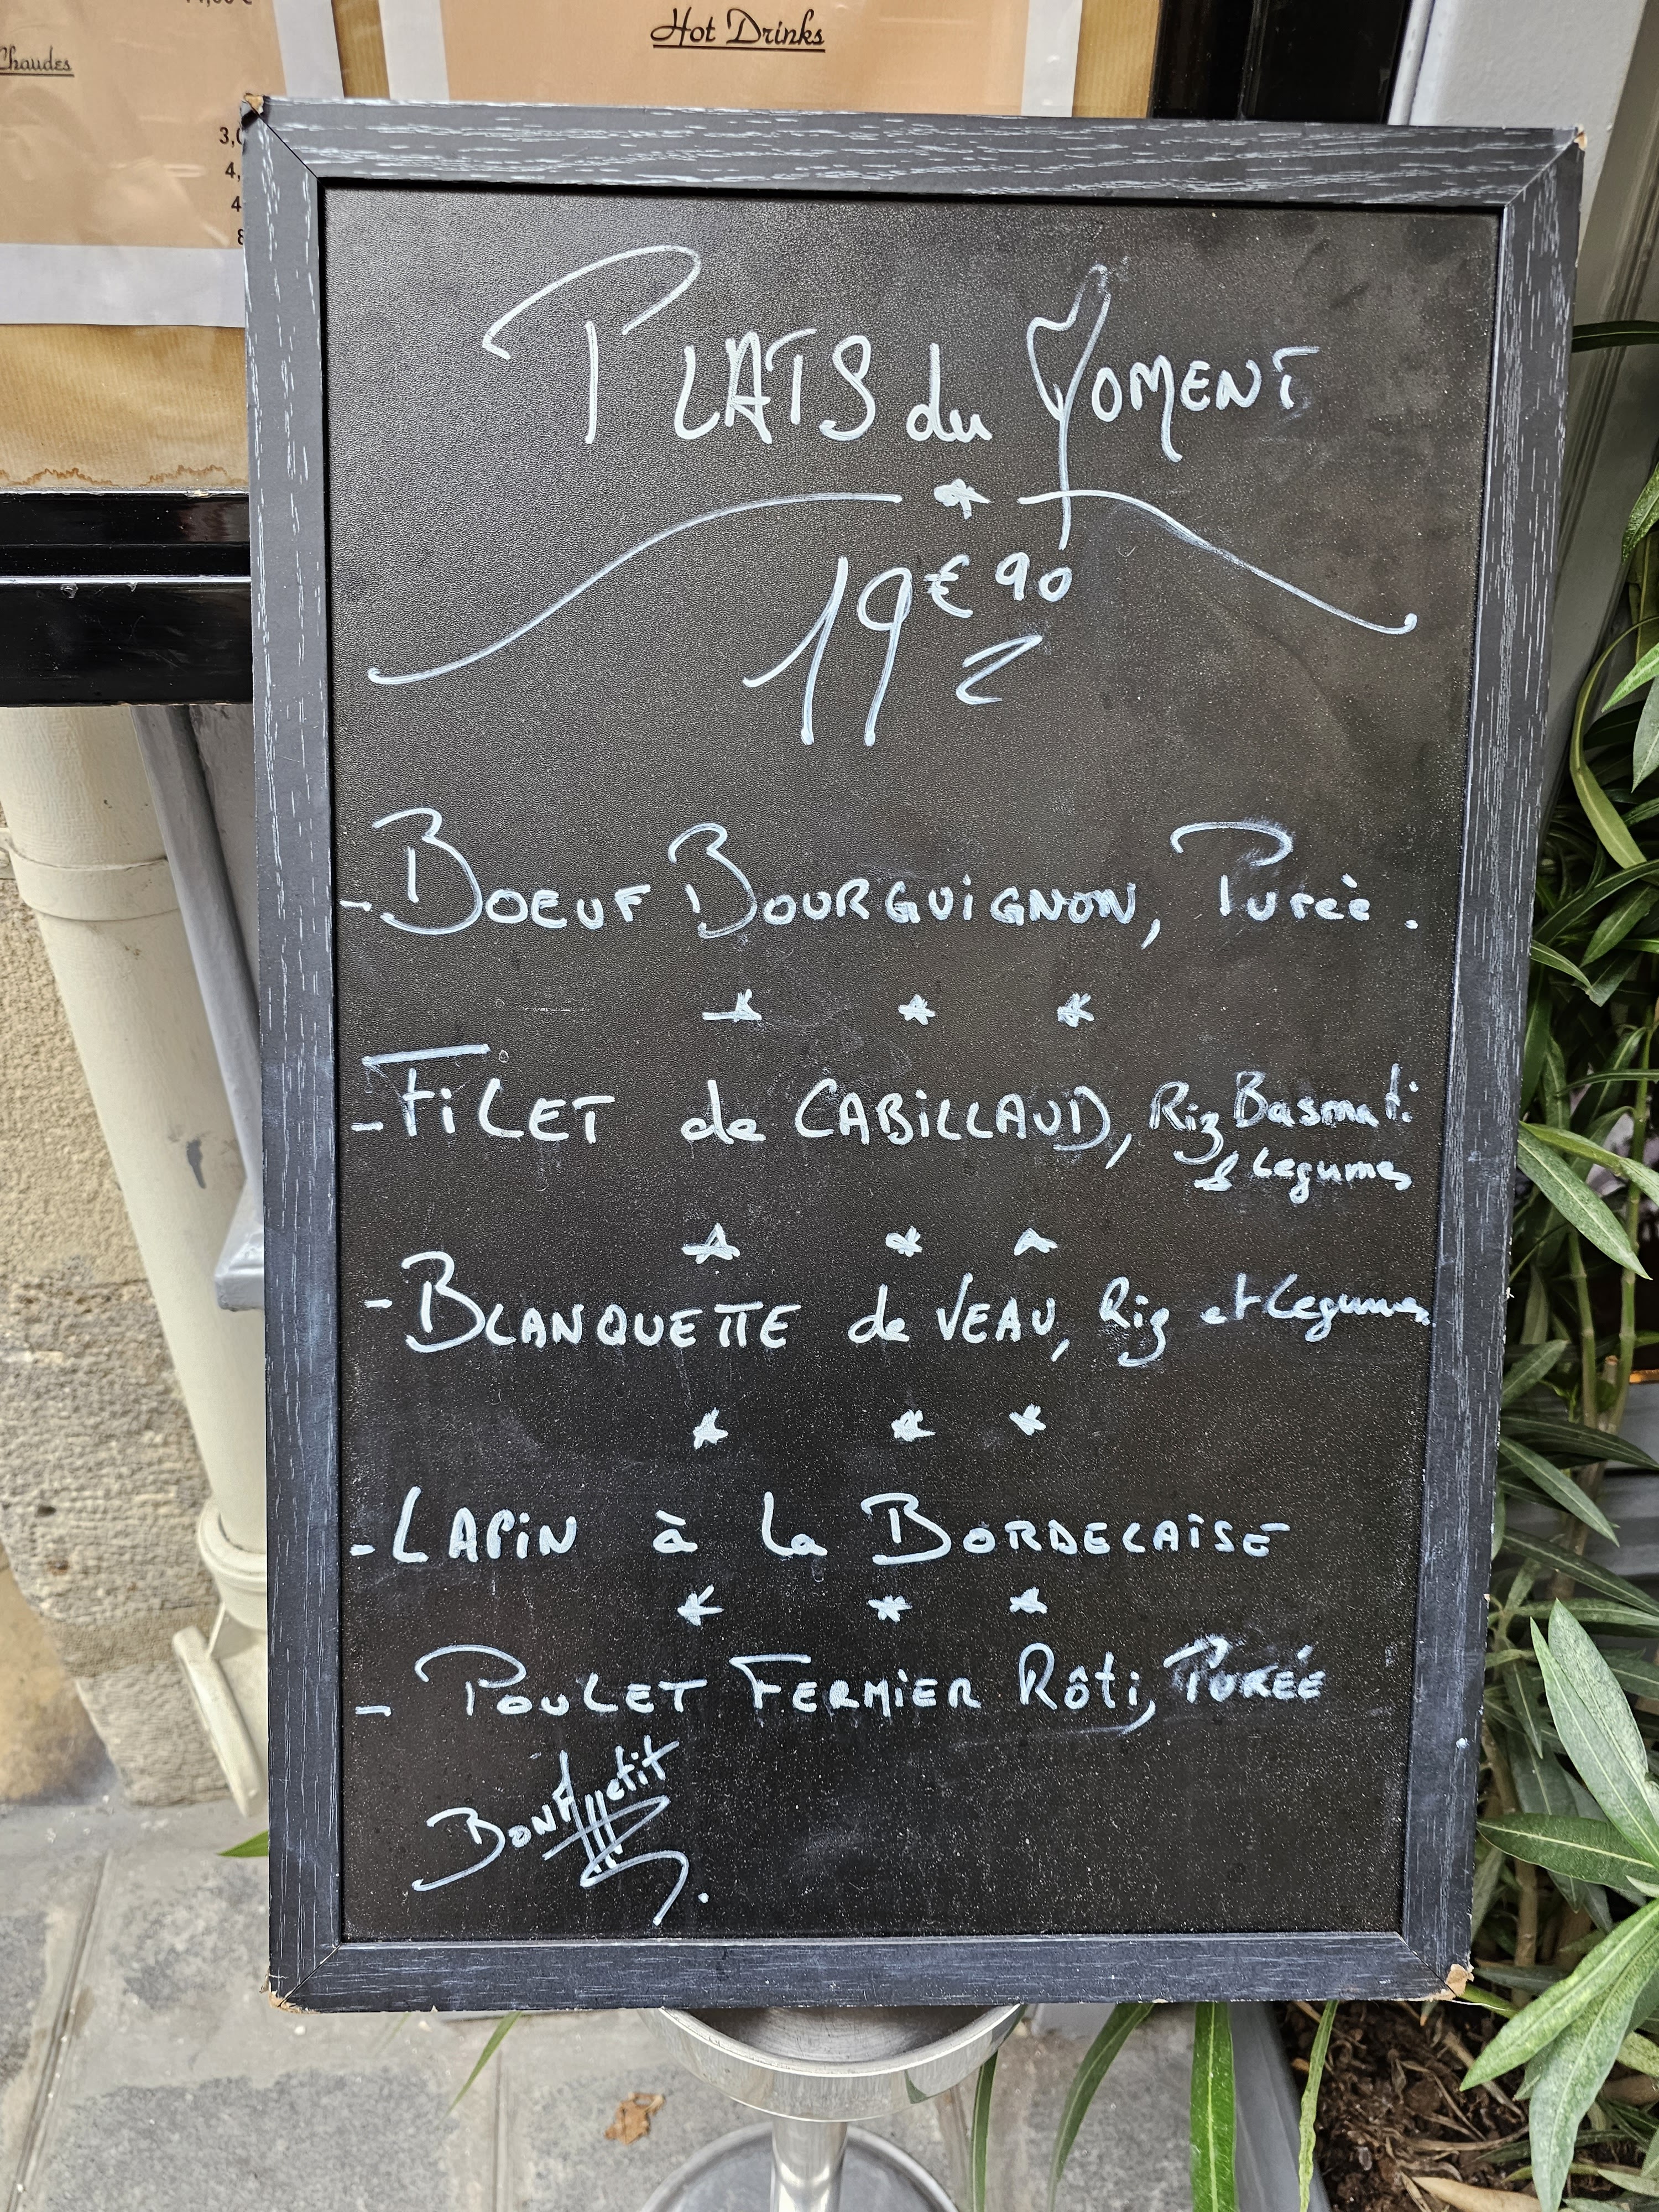 Hot Drinks
Chaudes
PLATS du MOMENT
19€90
- BOEUF BOURGUIGNON, Purée.
- FILET de CABILLAUD, Riz Basmati
& Legumes
- BLANQUETTE de VEAU, Riz et Legumes
- LAPIN à la BORDELAISE
- POULET FERMIER Rôti, PURÉE
BON Appetit